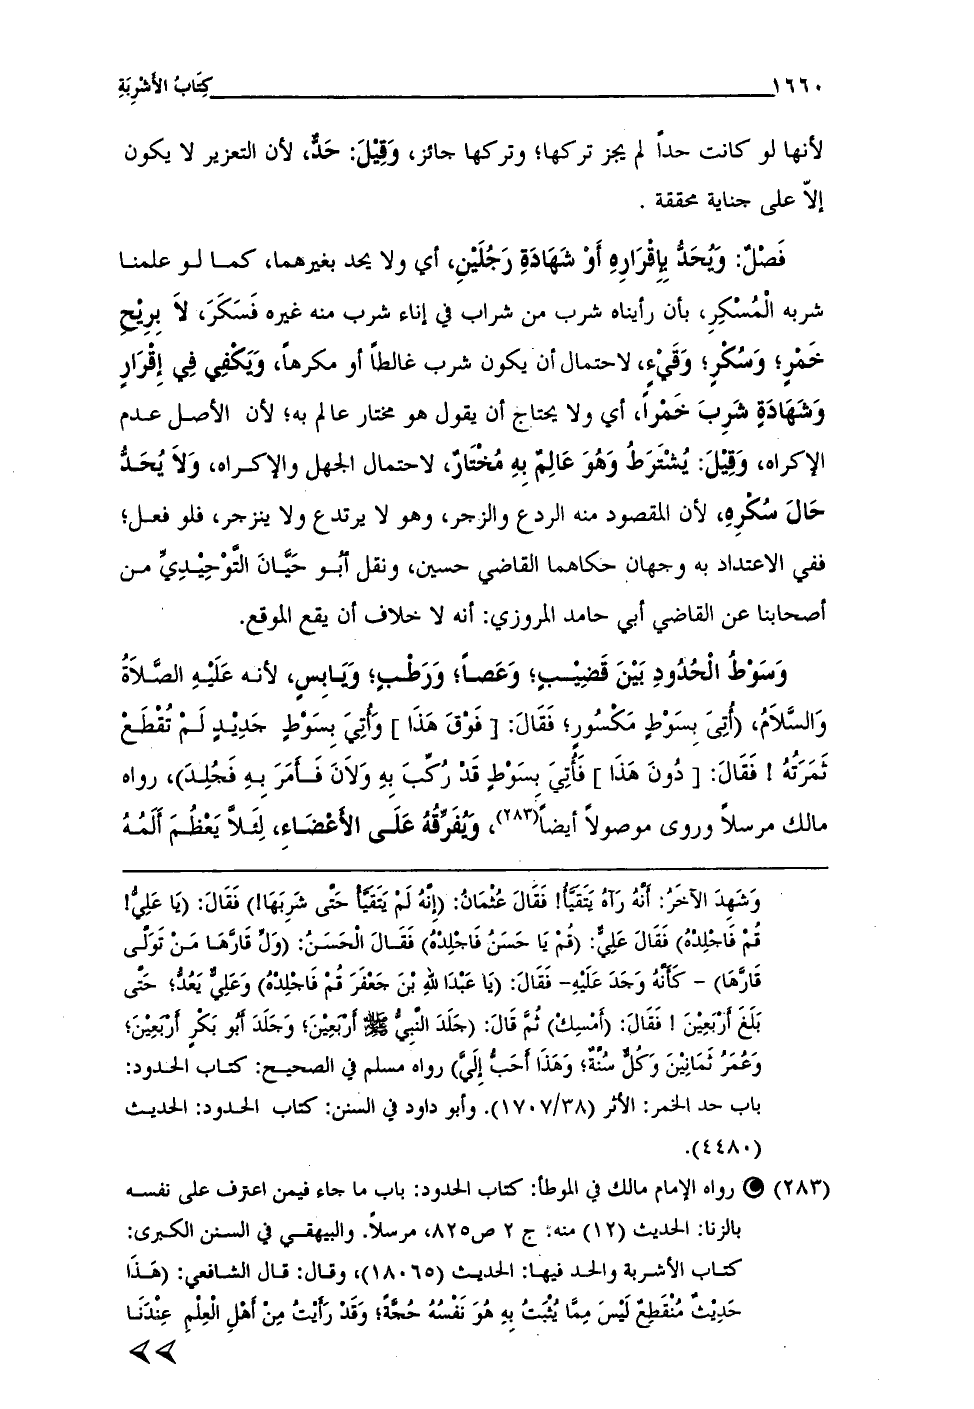 ١٦٦٠ كِتَابُ الأَشْرِبَةِ
لأنها لو كانت حداً لم يجز تركها؛ وتركها جائز، وَقِيْلَ: حَدٌّ، لأن التعزير لا يكون
إلاّ على جناية محققة .
فَصْلٌ: وَيُحَدُّ بِإِقْرَارِهِ أَوْ شَهَادَةِ رَجُلَيْنِ، أي ولا يحد بغيرهما، كمـا لـو علمنـا
شربه الْمُسْكِرِ، بأن رأيناه شرب من شراب في إناء شرب منه غيره فَسَكَرَ، لاَ بِرِيْحِ
خَمْرٍ؛ وَسُكْرٍ؛ وَقَيْءٍ، لاحتمال أن يكون شرب غالطاً أو مكرهاً، وَيَكْفِي فِي إِقْرَارٍ
وَشَهَادَةٍ شَرِبَ خَمْراً، أي ولا يحتاج أن يقول هو مختار عالم به؛ لأن الأصـل عـدم
الإكراه، وَقِيْلَ: يُشْتَرَطُ وَهُوَ عَالِمٌ بِهِ مُخْتَارٌ، لاحتمال الجهل والإكـراه، وَلاَ يُحَـدُّ
حَالَ سُكْرِهِ، لأن المقصود منه الردع والزجر، وهو لا يرتدع ولا ينزجر، فلو فعل؛
ففي الاعتداد به وجهان حكاهما القاضي حسين، ونقل أَبُـو حَيَّـانَ التَّوْحِيْـدِيِّ مـن
أصحابنا عن القاضي أبي حامد المروزي: أنه لا خلاف أن يقع الموقع.
وَسَوْطُ الْحُدُودِ بَيْنَ قَضِيْـبٍ؛ وَعَصـاً؛ وَرَطْـبٍ؛ وَيَـابِسٍ، لأنـه عَلَيْـهِ الصَّـلاَةُ
وَالسَّلاَمُ، (أُتِيَ بِسَوْطٍ مَكْسُورٍ؛ فَقَالَ: [ فَوْقَ هَذَا ] وَأُتِيَ بِسَوْطٍ حَدِيْـدٍ لَـمْ تُقْطَـعْ
ثَمَرَتُهُ ! فَقَالَ: [ دُونَ هَذَا ] فَأُتِيَ بِسَوْطٍ قَدْ رُكِّبَ بِهِ وَلاَنَ فَـأَمَرَ بِـهِ فَجُلِـدَ)، رواه
مالك مرسلاً وروى موصولاً أيضاً(٢٨٣)، وَيُفَرِّقُهُ عَلَـى الأَعْضَـاءِ، لِئَـلاَّ يَعْظُـمَ أَلَمُـهُ
وَشَهِدَ الآخَرُ: أَنَّهُ رَآهُ يَتَقَيَّأُ! فَقَالَ عُثْمَانُ: (إِنَّهُ لَمْ يَتَقَيَّأْ حَتَّى شَرِبَهَا!) فَقَالَ: (يَا عَلِيُّ!
قُمْ فَاجْلِدْهُ) فَقَالَ عَلِيٌّ: (قُمْ يَا حَسَنُ فَاجْلِدْهُ) فَقَـالَ الْحَسَنُ: (وَلِّ حَارَّهَـا مَـنْ تَوَلَّـى
قَارَّهَا) - كَأَنَّهُ وَجَدَ عَلَيْهِ- فَقَالَ: (يَا عَبْدَا للهِ بْنَ جَعْفَرَ قُمْ فَاجْلِدْهُ) وَعَلِيٌّ يَعُدُّ؛ حَتَّى
بَلَغَ أَرْبَعِيْنَ ! فَقَالَ: (أَمْسِكْ) ثُمَّ قَالَ: (جَلَدَ النَّبِيُّ ﷺ أَرْبَعِيْنَ؛ وَجَلَدَ أَبُو بَكْرٍ أَرْبَعِيْنَ؛
وَعُمَرُ ثَمَانِيْنَ وَكُلٌّ سُنَّةٌ؛ وَهَذَا أَحَبُّ إِلَيَّ) رواه مسلم في الصحيح: كتاب الحدود:
باب حد الخمر: الأثر (١٧٠٧/٣٨). وأبو داود في السنن: كتاب الحـدود: الحديـث
(٤٤٨٠).
(٢٨٣) رواه الإمام مالك في الموطأ: كتاب الحدود: باب ما جاء فيمن اعترف على نفسـه
بالزنا: الحديث (١٢) منه: ج ٢ ص٨٢٥، مرسلاً. والبيهقـي في السـنن الكبـرى:
كتـاب الأشـربة والحـد فيهـا: الحديـث (١٨٠٦٥)، وقـال: قـال الشـافعي: (هَـذَا
حَدِيْثٌ مُنْقَطِعٌ لَيْسَ مِمَّا يُثْبَتُ بِهِ هُوَ نَفْسُهُ حُجَّةً؛ وَقَدْ رَأَيْتُ مِنْ أَهْلِ الْعِلْمِ عِنْدَنَـا